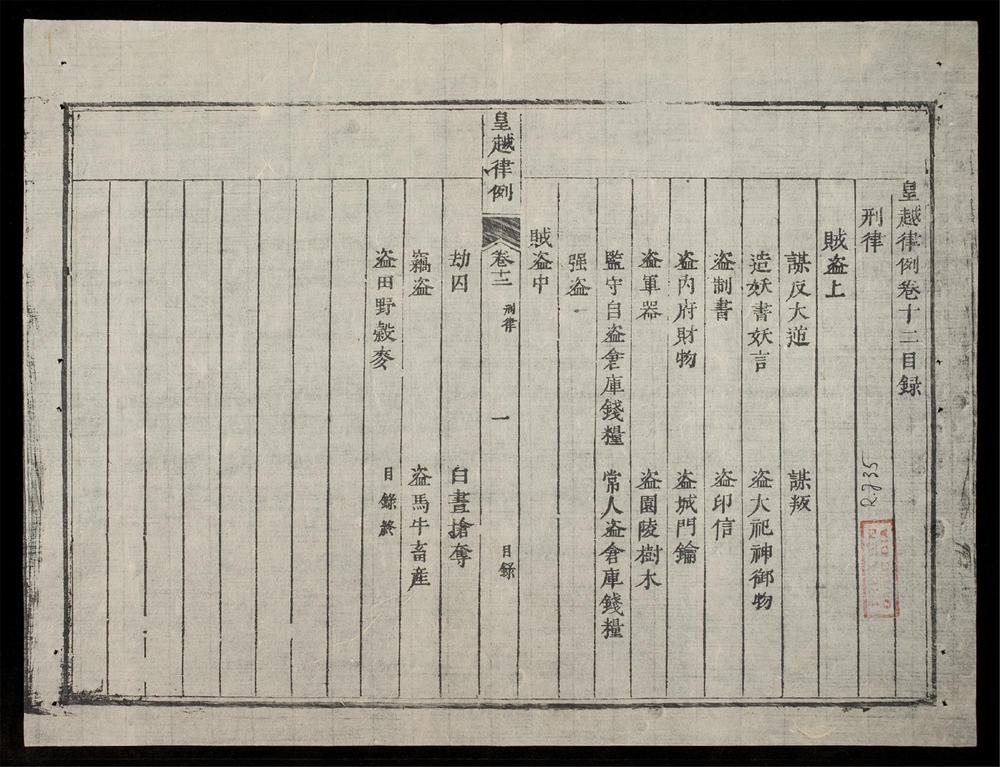 皇越律例卷十二目録
刑律
賊盗上
謀反大逆
謀叛
造妖書妖言
盗大祀神御物
盗制書
盗印信
盗内府財物
盗城門鑰
盗軍器
盗園陵樹木
監守自盗倉庫錢糧
常人盗倉庫錢糧
强盗
賊盗中
皇越律例
卷十二
刑律
一
目録
劫囚
白晝搶奪
竊盗
盗馬牛畜産
盗田野穀麥
目錄終
R.735